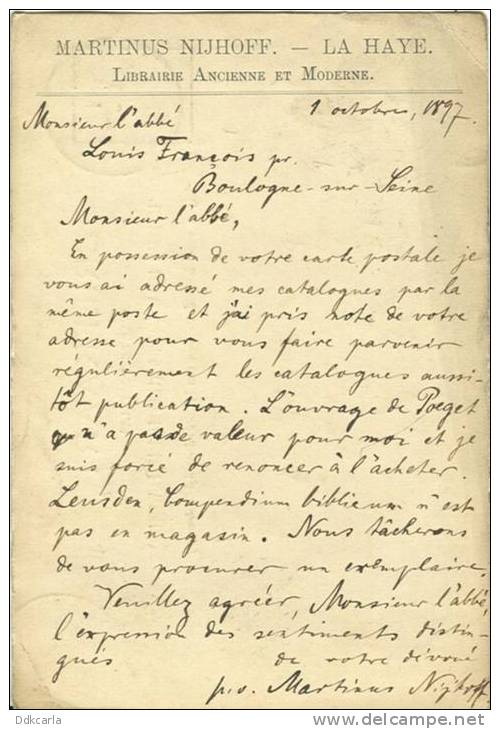 MARTINUS NIJHOFF. — LA HAYE.
LIBRAIRIE ANCIENNE ET MODERNE.
1 octobre, 1897.
Monsieur l'abbé
Louis François pr.
Boulogne-sur-Seine
Monsieur l'abbé,
En possession de votre carte postale je
vous ai adressé mes catalogues par la
même poste et j'ai pris note de votre
adresse pour vous faire parvenir
régulièrement les catalogues aussi-
tôt publication. L'ouvrage de Poeget
n'a pas de valeur pour moi et je
suis forcé de renoncer à l'acheter.
Leusden, Compendium biblicum n'est
pas en magasin. Nous tâcherons
de vous procurer un exemplaire.
Veuillez agréer, Monsieur l'abbé,
l'expression des sentiments distin-
gués de votre dévoué
p.o. Martinus Nijhoff.
Ddkcarla
delcampe.net